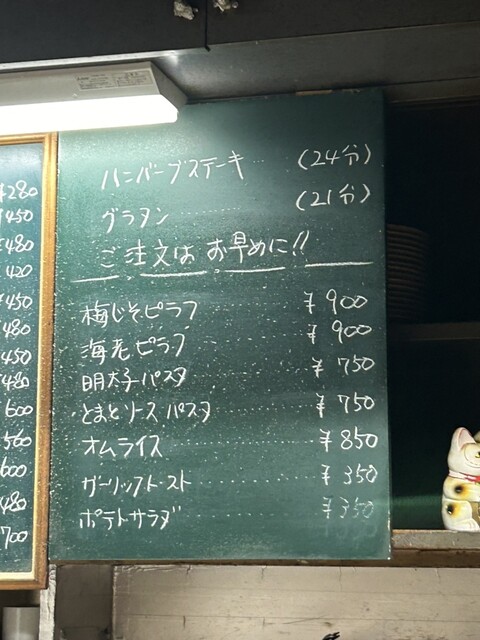 ハンバーグステーキ (24分)
グラタン (21分)
ご注文は お早めに!!
梅じそピラフ ¥900
海老ピラフ ¥900
明太子パスタ ¥750
とまとソースパスタ ¥750
オムライス ¥850
ガーリックトースト ¥350
ポテトサラダ ¥350
¥280
¥450
¥480
420
¥450
480
450
¥480
600
560
600
480
700